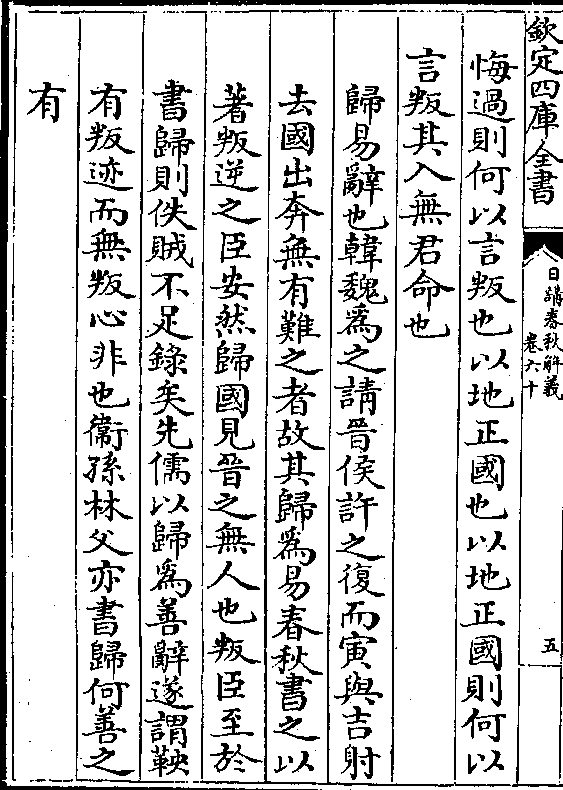 欽定四庫全書
日講春秋解義
卷六十
五
悔過則何以言叛也以地正國也以地正國則何以
言叛其入無君命也
歸易辭也韓魏爲之請晉侯許之復而寅與吉射
去國出奔無有難之者故其歸爲易春秋書之以
著叛逆之臣安然歸國見晉之無人也叛臣至於
書歸則佚賊不足錄矣先儒以歸爲善辭遂謂鞅
有叛迹而無叛心非也衞孫林父亦書歸何善之
有